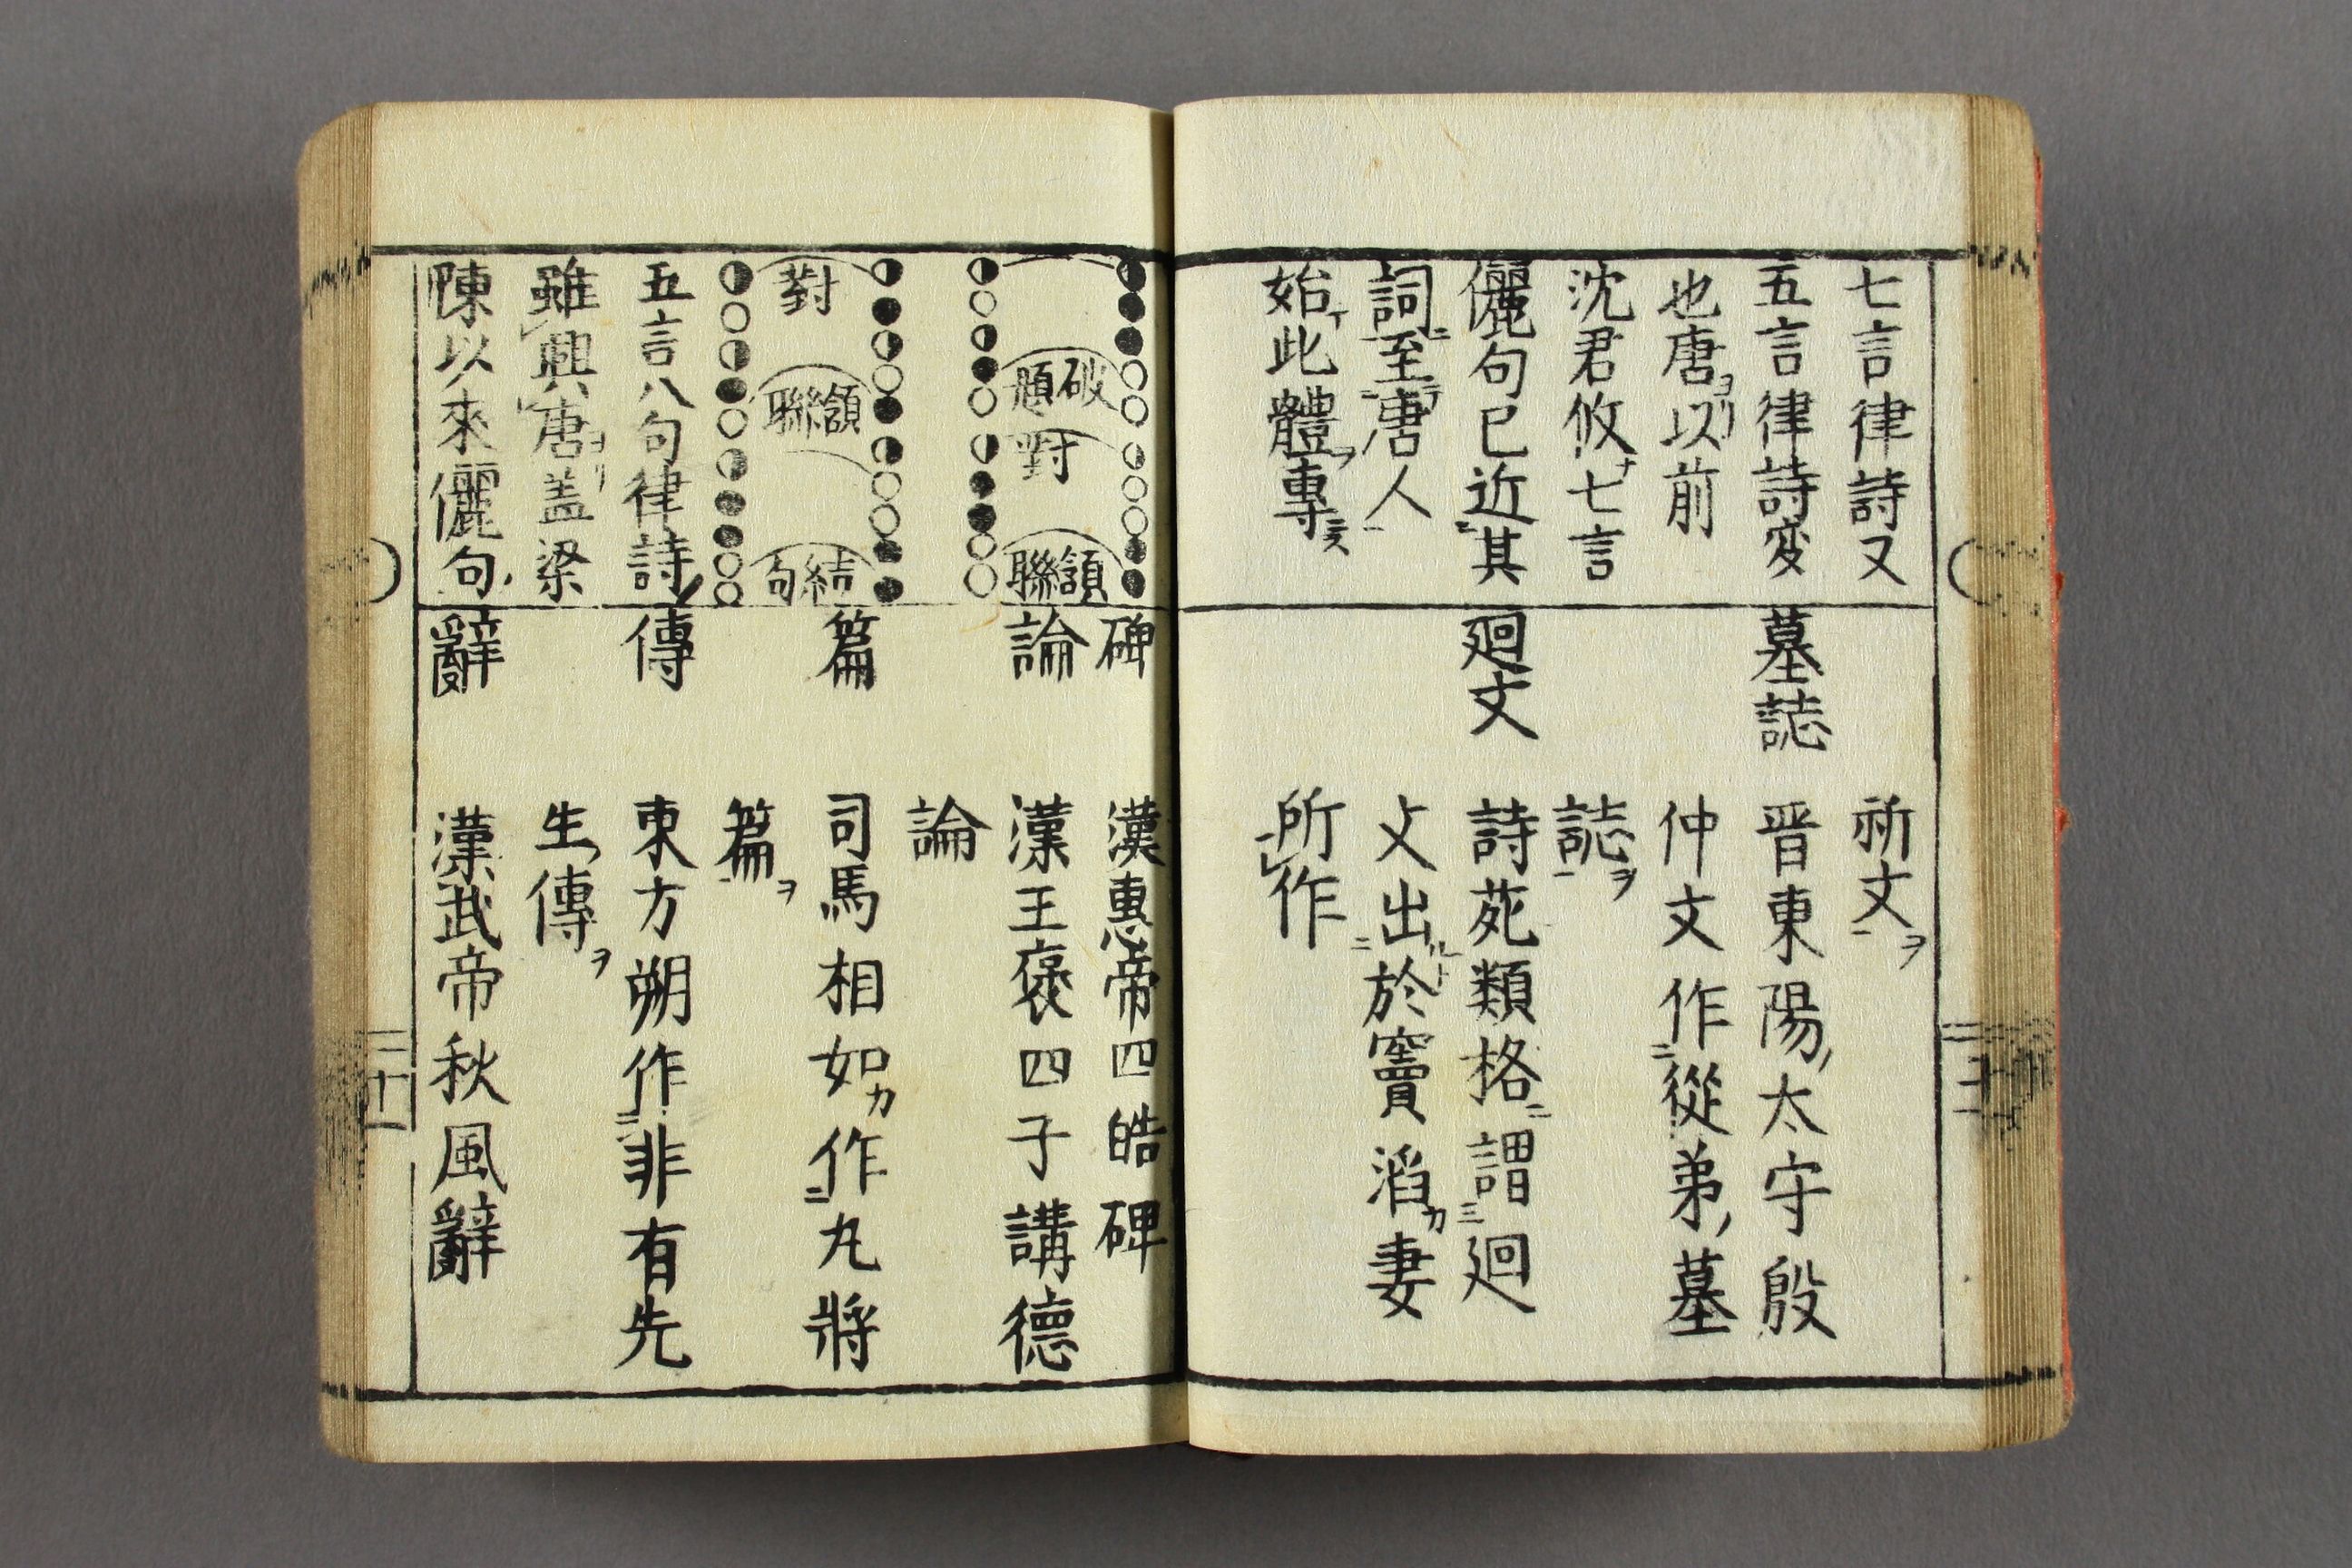 七言律詩又
五言律詩変
也唐ヨリ以前
沈君攸ナ七言
儷句已近其
詞至唐人
始此體ヲ專
祈文ヲ
墓誌
晋東陽太守殷
仲文作從弟墓
誌ヲ
廻文
詩苑類格謂廻
文出於竇滔カ妻
所作
破題
對
頷聯
對
頷聯
結句
五言八句律詩
雖興唐ヨリ盖梁
陳以來儷句
碑
漢惠帝四皓碑
論
漢王褒四子講德
論
篇
司馬相如カ作九將
篇ヲ
傳
東方朔作非有先
生傳ヲ
辭
漢武帝秋風辭
三十一